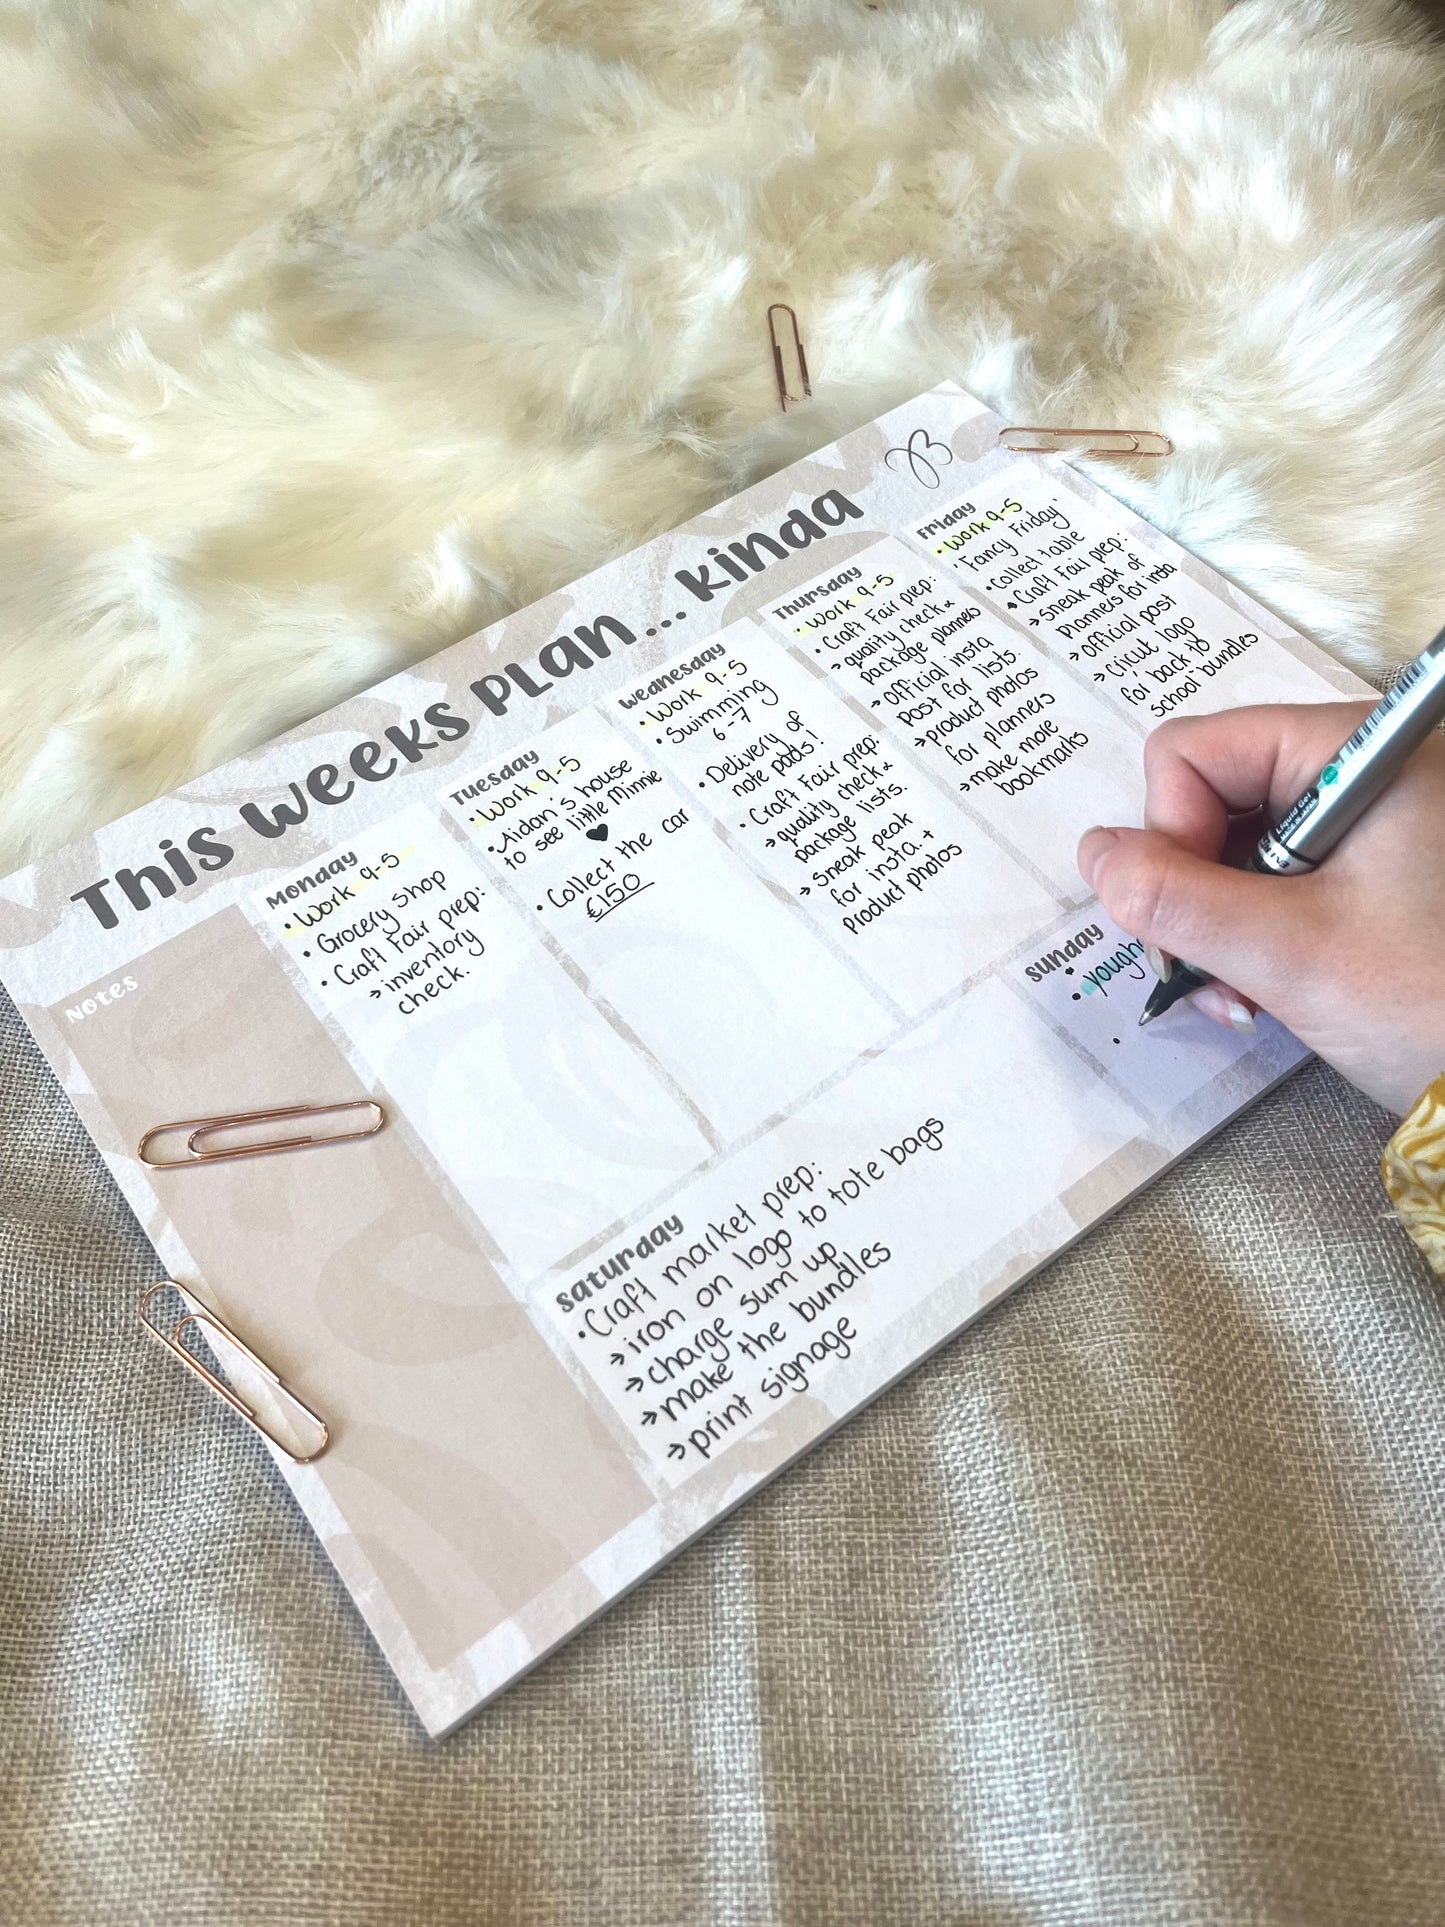 This weeks plan... kinda
B
Notes
Monday
• Work 9-5
• Grocery shop
• Craft Fair prep:
→ inventory
check.
Tuesday
• Work 9-5
• Aidan's house
to see little Minnie
♥
• Collect the car
£150
Wednesday
• Work 9-5
• Swimming
6-7
• Delivery of
note pads!
• Craft Fair prep:
→ quality check &
package lists.
→ sneak peak
for insta. +
product photos
Thursday
• Work 9-5
• Craft Fair prep:
→ quality check &
package planners
→ official insta
post for lists.
→ product photos
for planners
→ make more
bookmarks
Friday
• Work 9-5
'Fancy Friday'
• Collect table
• Craft Fair prep:
→ sneak peak of
planners for insta
→ official post
→ Cricut logo
for back to
school bundles
Saturday
• Craft market prep:
→ iron on logo to tote bags
→ charge sum up
→ make the bundles
→ print signage
Sunday
•
Liquid Gel
MADE IN JAPAN